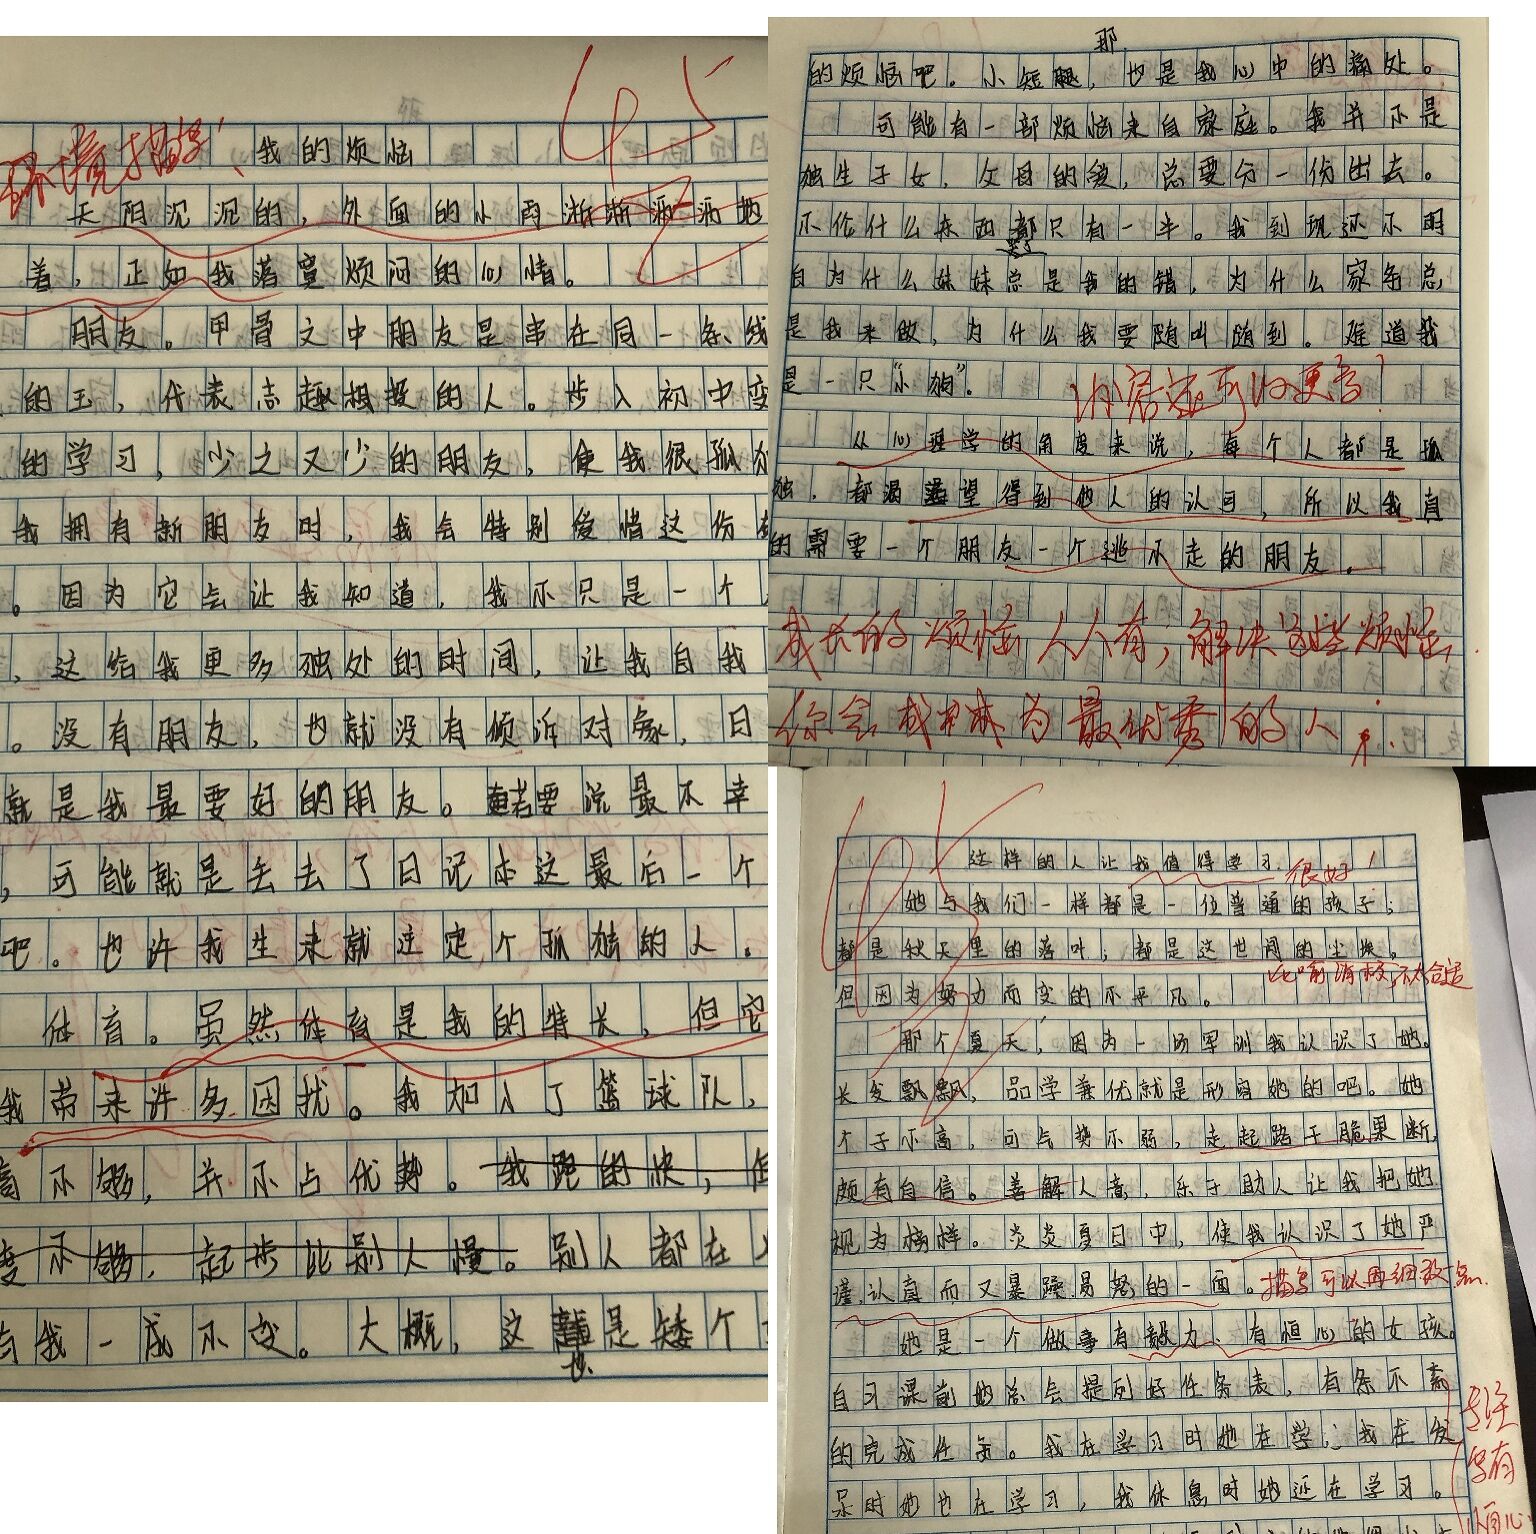 45
环境描写!
我的烦恼
天阴沉沉的，外面的小雨淅淅沥沥地
着，正如我落寞烦闷的心情。
朋友。甲骨文中朋友是串在同一条线
的玉，代表志趣相投的人。步入初中变
的学习，少之又少的朋友，使我很孤
我拥有新朋友时，我会特别爱惜这份
。因为它会让我知道，我不只是一个
，这给我更多独处的时间，让我自我
。没有朋友，也就没有倾诉对象，日
就是我最要好的朋友。若要说最不幸
，可能就是丢去了日记本这最后一个
吧。也许我生来就注定个孤独的人。
体育。虽然体育是我的特长，但它
我带来许多困扰。我加入了篮球队，
高不够，并不占优势。我跑的快，但
不够，起步比别人慢。别人都在
我一成不变。大概，这也是矮个
那
的烦恼吧。小短腿，也是我心中的痛处。
可能有一部烦恼来自家庭。我并不是
独生子女，父母的爱，总要分一份出去。
不伦什么东西都只有一半。我到现还不明
白为什么妹妹总是我的错，为什么家务总
是我来做，为什么我要随叫随到。难道我
是一只“小狗”。
从心理学的角度来说，每个人都是孤
独，都渴望得到他人的认可，所以我真
的需要一个朋友一个逃不走的朋友。
成长的烦恼人人有，解决这些烦恼
你会成为最优秀的人
45
这样的人让我值得学习
很好！
她与我们一样都是一位普通的孩子；
都是秋天里的落叶；都是这世间的尘埃。
比喻消极，不太合适
但因为努力而变的不平凡。
那个夏天，因为一场军训我认识了她。
长发飘飘，品学兼优就是形容她的吧。她
个子不高，可气势不弱，走起路干脆果断，
颇有自信。善解人意，乐于助人让我把她
视为榜样。炎炎夏日中，使我认识了她严
谨、认真而又暴躁易怒的一面。
描写可以再细致一点
她是一个做事有毅力、有恒心的女孩。
自习课前她总会提列好任务表，有条不紊
的完成任务。我在学习时她在学；我在发
呆时她也在学习，我休息时她还在学习。